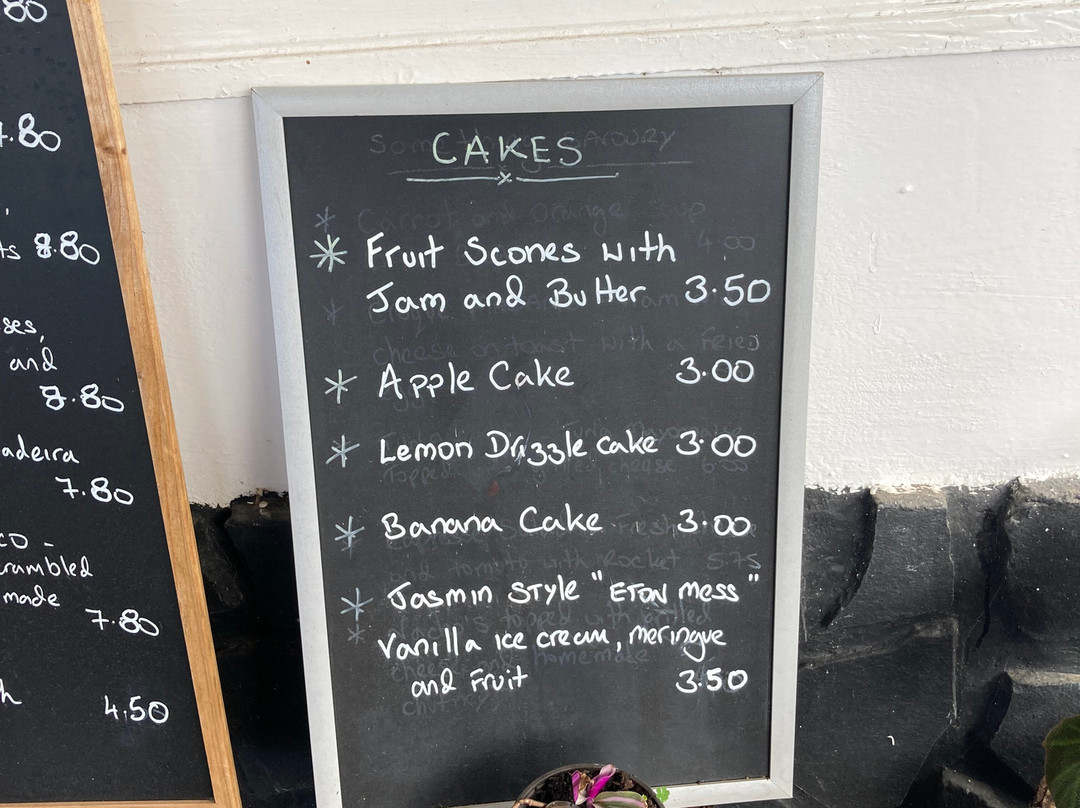 80
7.80
ts 8.80
ses,
and
8.80
adeira
7.80
co -
rambled
made
7.80
4.50
CAKES
* Fruit Scones with
Jam and Butter 3.50
* Apple Cake 3.00
* Lemon Drizzle cake 3.00
* Banana Cake 3.00
* Jasmin Style "ETON Mess"
Vanilla ice cream, meringue
and Fruit 3.50